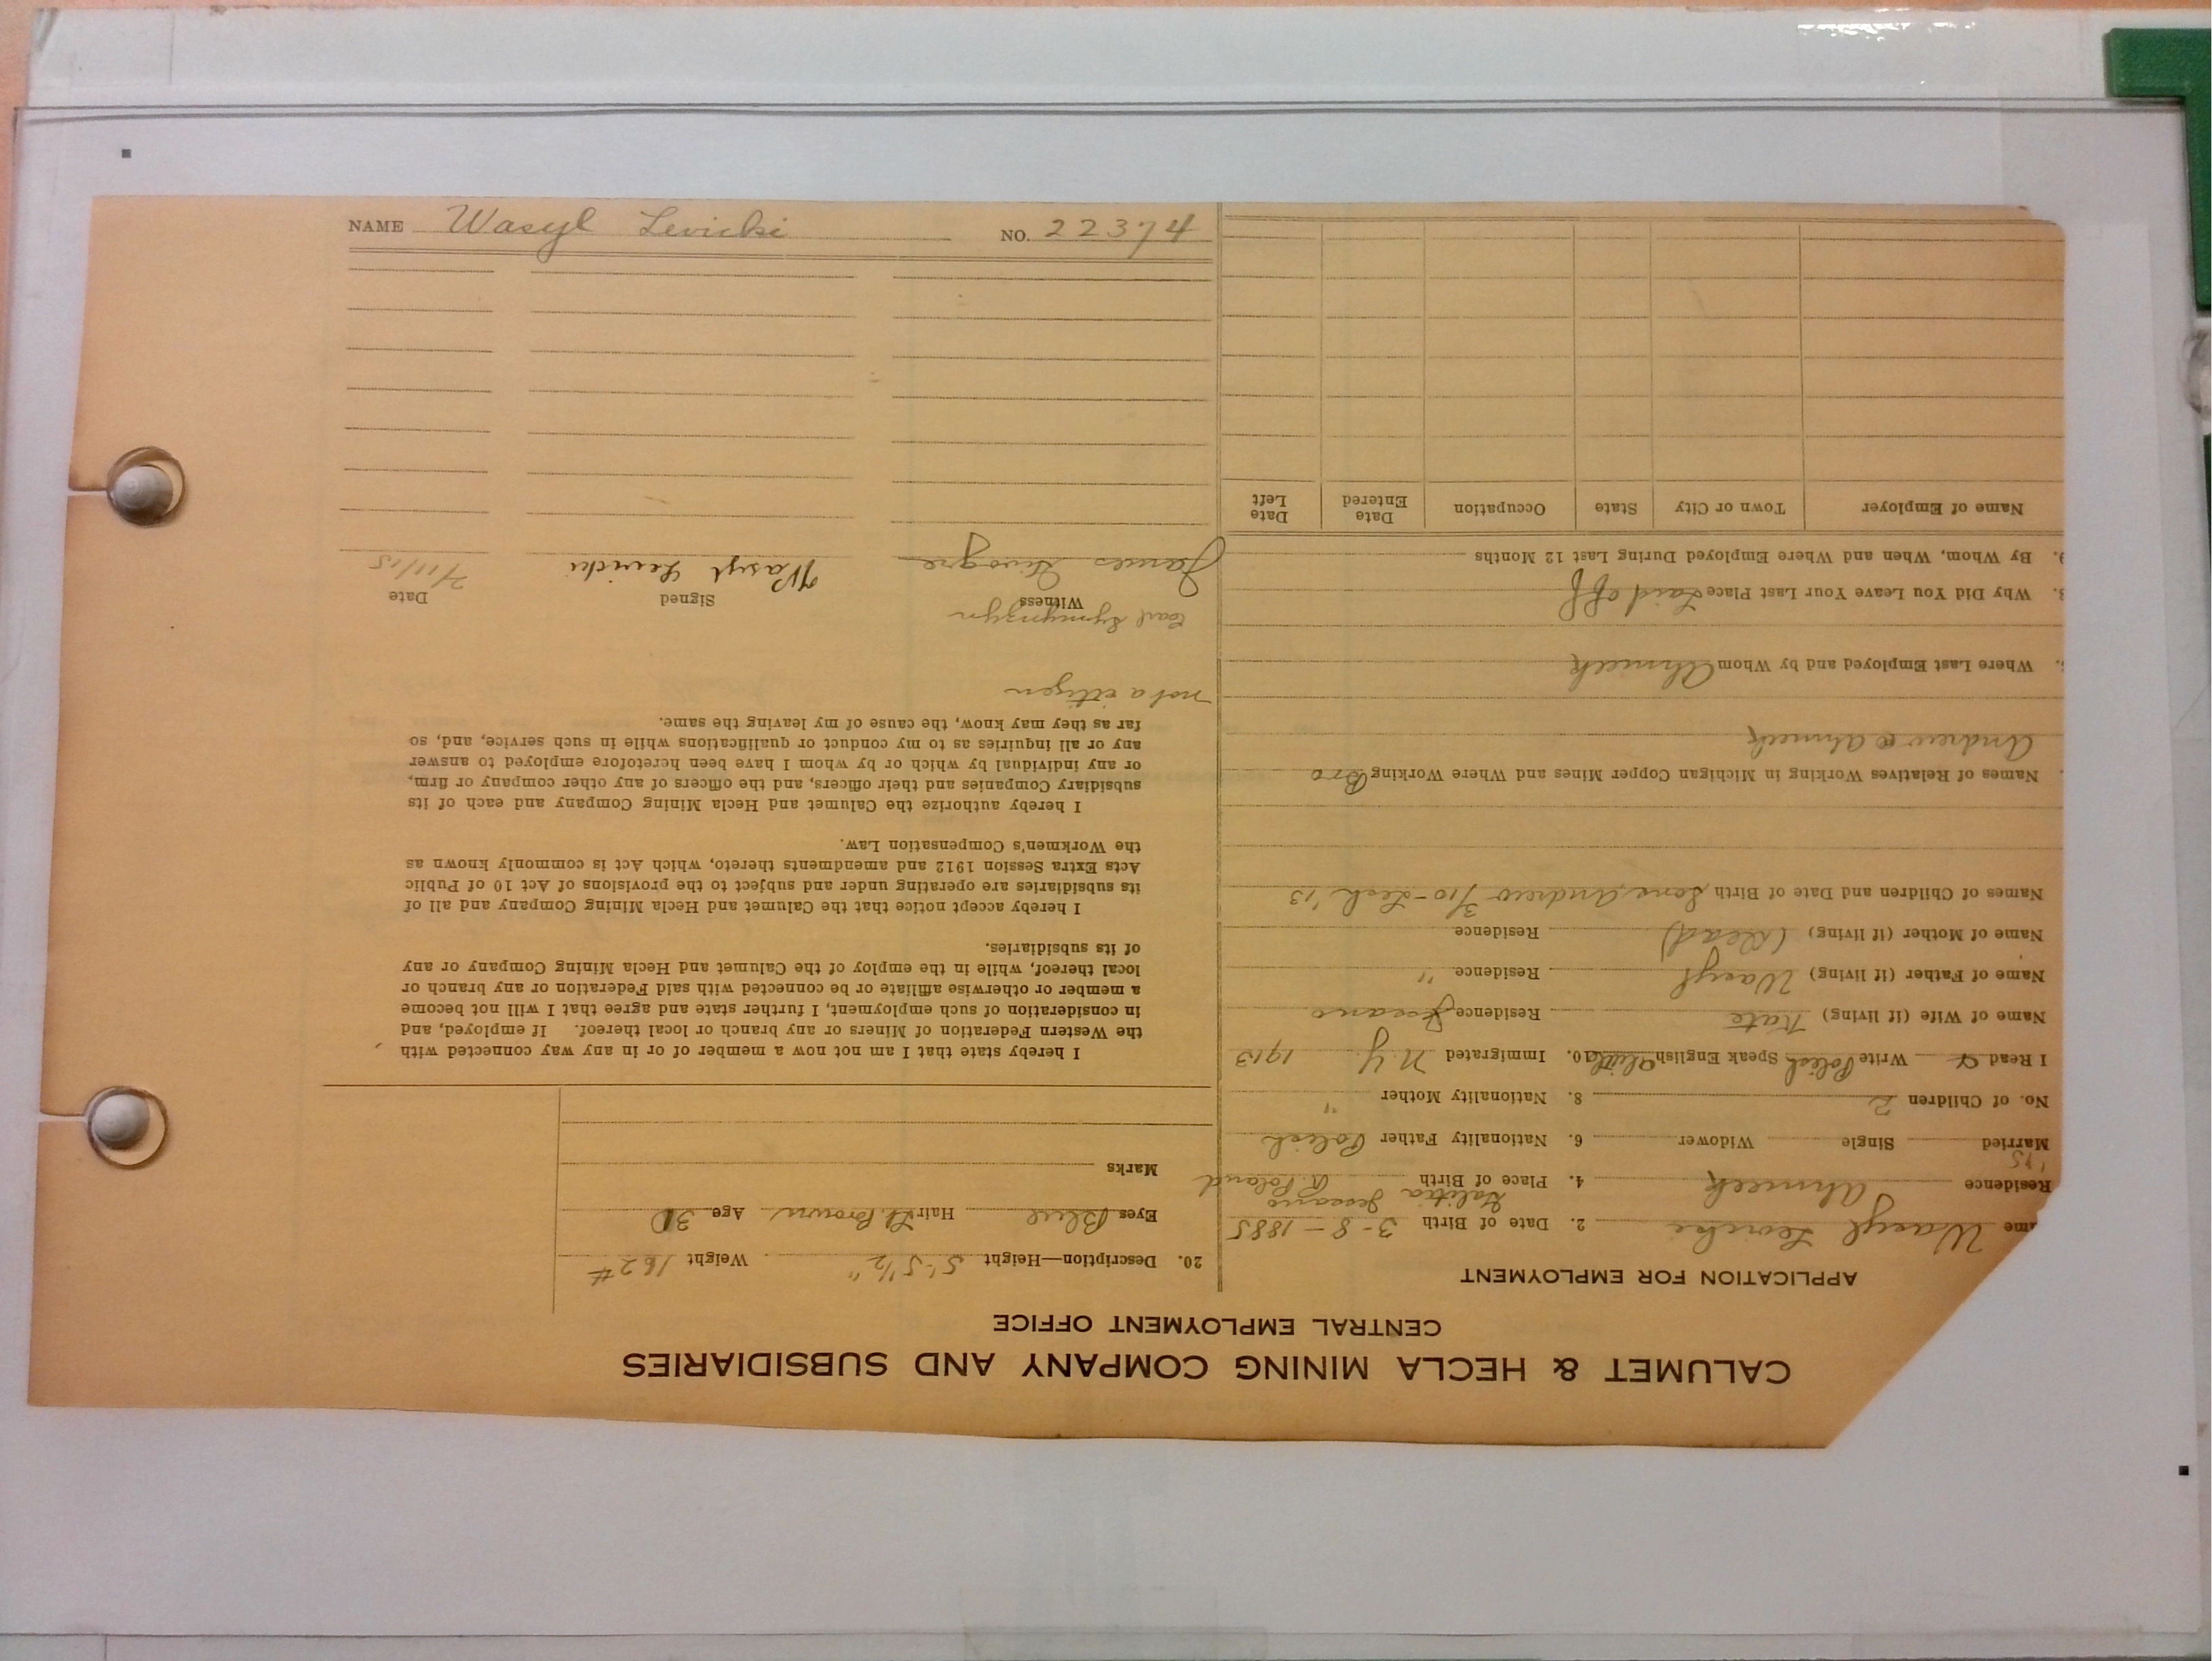 CALUMET & HECLA MINING COMPANY AND SUBSIDIARIES
CENTRAL EMPLOYMENT OFFICE
APPLICATION FOR EMPLOYMENT
me Wasyl Levicki 2. Date of Birth 3-8-1885
Galitia
Residence Ahmeek 4. Place of Birth A. Poland
'15
Married Single Widower 6. Nationality Father Polish
No. of Children 2 8. Nationality Mother "
I Read & Write Polish Speak English alittle 10. Immigrated N.Y. 1913
Name of Wife (if living) Kate Residence
Name of Father (if living) Wasyl Residence "
Name of Mother (if living) (Dead) Residence
Names of Children and Date of Birth Sons, Andrew 3/10 - '13
Names of Relatives Working in Michigan Copper Mines and Where Working Bro
Andrew @ Ahmeek
Where Last Employed and by Whom Ahmeek
Why Did You Leave Your Last Place Laid off
9. By Whom, When and Where Employed During Last 12 Months
Name of Employer Town or City State Occupation Date Entered Date Left
20. Description—Height 5'-5 1/2" Weight 162 #
Eyes Blue Hair Lt. Brown Age 30
Marks
I hereby state that I am not now a member of or in any way connected with
the Western Federation of Miners or any branch or local thereof. If employed, and
in consideration of such employment, I further state and agree that I will not become
a member or otherwise affiliate or be connected with said Federation or any branch or
local thereof, while in the employ of the Calumet and Hecla Mining Company or any
of its subsidiaries.
I hereby accept notice that the Calumet and Hecla Mining Company and all of
its subsidiaries are operating under and subject to the provisions of Act 10 of Public
Acts Extra Session 1912 and amendments thereto, which Act is commonly known as
the Workmen's Compensation Law.
I hereby authorize the Calumet and Hecla Mining Company and each of its
subsidiary Companies and their officers, and the officers of any other company or firm,
or any individual by which or by whom I have been heretofore employed to answer
any or all inquiries as to my conduct or qualifications while in such service, and, so
far as they may know, the cause of my leaving the same.
not a citizen
Witness Signed Date
James Wasyl Levicki
NAME Wasyl Levicki NO. 22374